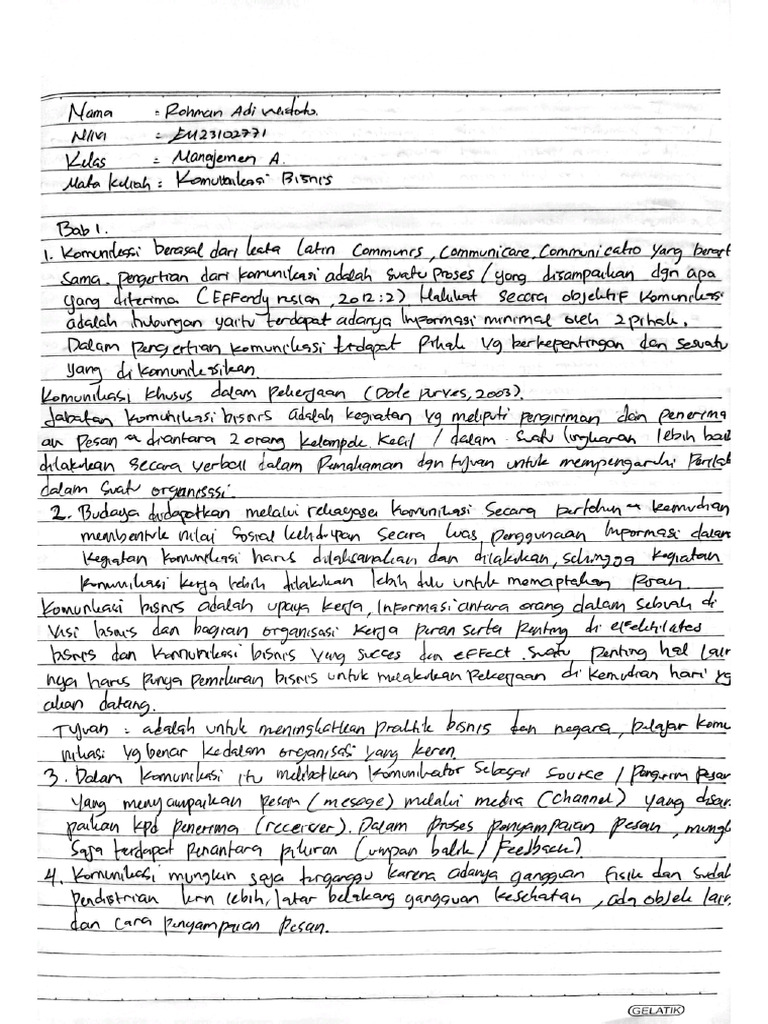 Nama : Rohman Adi
NIM : EM23102771
Kelas : Manajemen A.
Mata kuliah : Komunikasi Bisnis
Bab 1.
1. Komunikasi berasal dari kata latin Communis, Communicare, Communicatio yang berart
Sama. pengertian dari komunikasi adalah suatu proses / yang disampaikan dgn apa
yang diterima (Effendy ruslan, 2012:2) Hakikat secara objektif komunikasi
adalah hubungan yaitu terdapat adanya Informasi minimal oleh 2 pihak.
Dalam pengertian komunikasi terdapat pihak yg berkepentingan dan sesuatu
yang di komunikasikan.
Komunikasi khusus dalam pekerjaan (Dole purves, 2003).
Jabatan komunikasi bisnis adalah kegiatan yg meliputi pengiriman dan penerima
an pesan diantara 2 orang kelompok kecil / dalam suatu lingkaran lebih baik
dilakukan secara verball dalam pemahaman dgn tujuan untuk mempengaruhi
dalam suatu organisasi.
2. Budaya didapatkan melalui rekayasa komunikasi secara kemudian
membentuk nilai sosial kehidupan secara luas, penggunaan Informasi dalam
kegiatan komunikasi harus dilaksanakan dan dilakukan, sehingga kegiatan
komunikasi kerja lebih dilakukan lebih dulu untuk pesan.
Komunikasi bisnis adalah upaya kerja, Informasi antara orang dalam sebuah di
visi bisnis dan bagian organisasi kerja peran serta penting di
bisnis dan komunikasi bisnis yang succes dan effect. suatu penting hal lain
nya harus punya pemikiran bisnis untuk melakukan pekerjaan di kemudian hari yg
akan datang.
Tujuan : adalah untuk meningkatkan praktik bisnis dan negara, belajar komu
nikasi yg benar kedalam organisasi yang keren.
3. Dalam komunikasi itu melibatkan komunikator sebagai source / pengirim pesan
yang menyampaikan pesan (mesage) melalui media (channel) yang disam
paikan kpd penerima (receiver). Dalam proses penyampaian pesan, mungk
saja terdapat perantara pikiran (umpan balik / Feedback).
4. Komunikasi mungkin saja terganggu karena adanya gangguan fisik dan sudah
krn lebih, latar belakang gangguan kesehatan, ada objek lain,
dan cara penyampaian pesan.
GELATIK